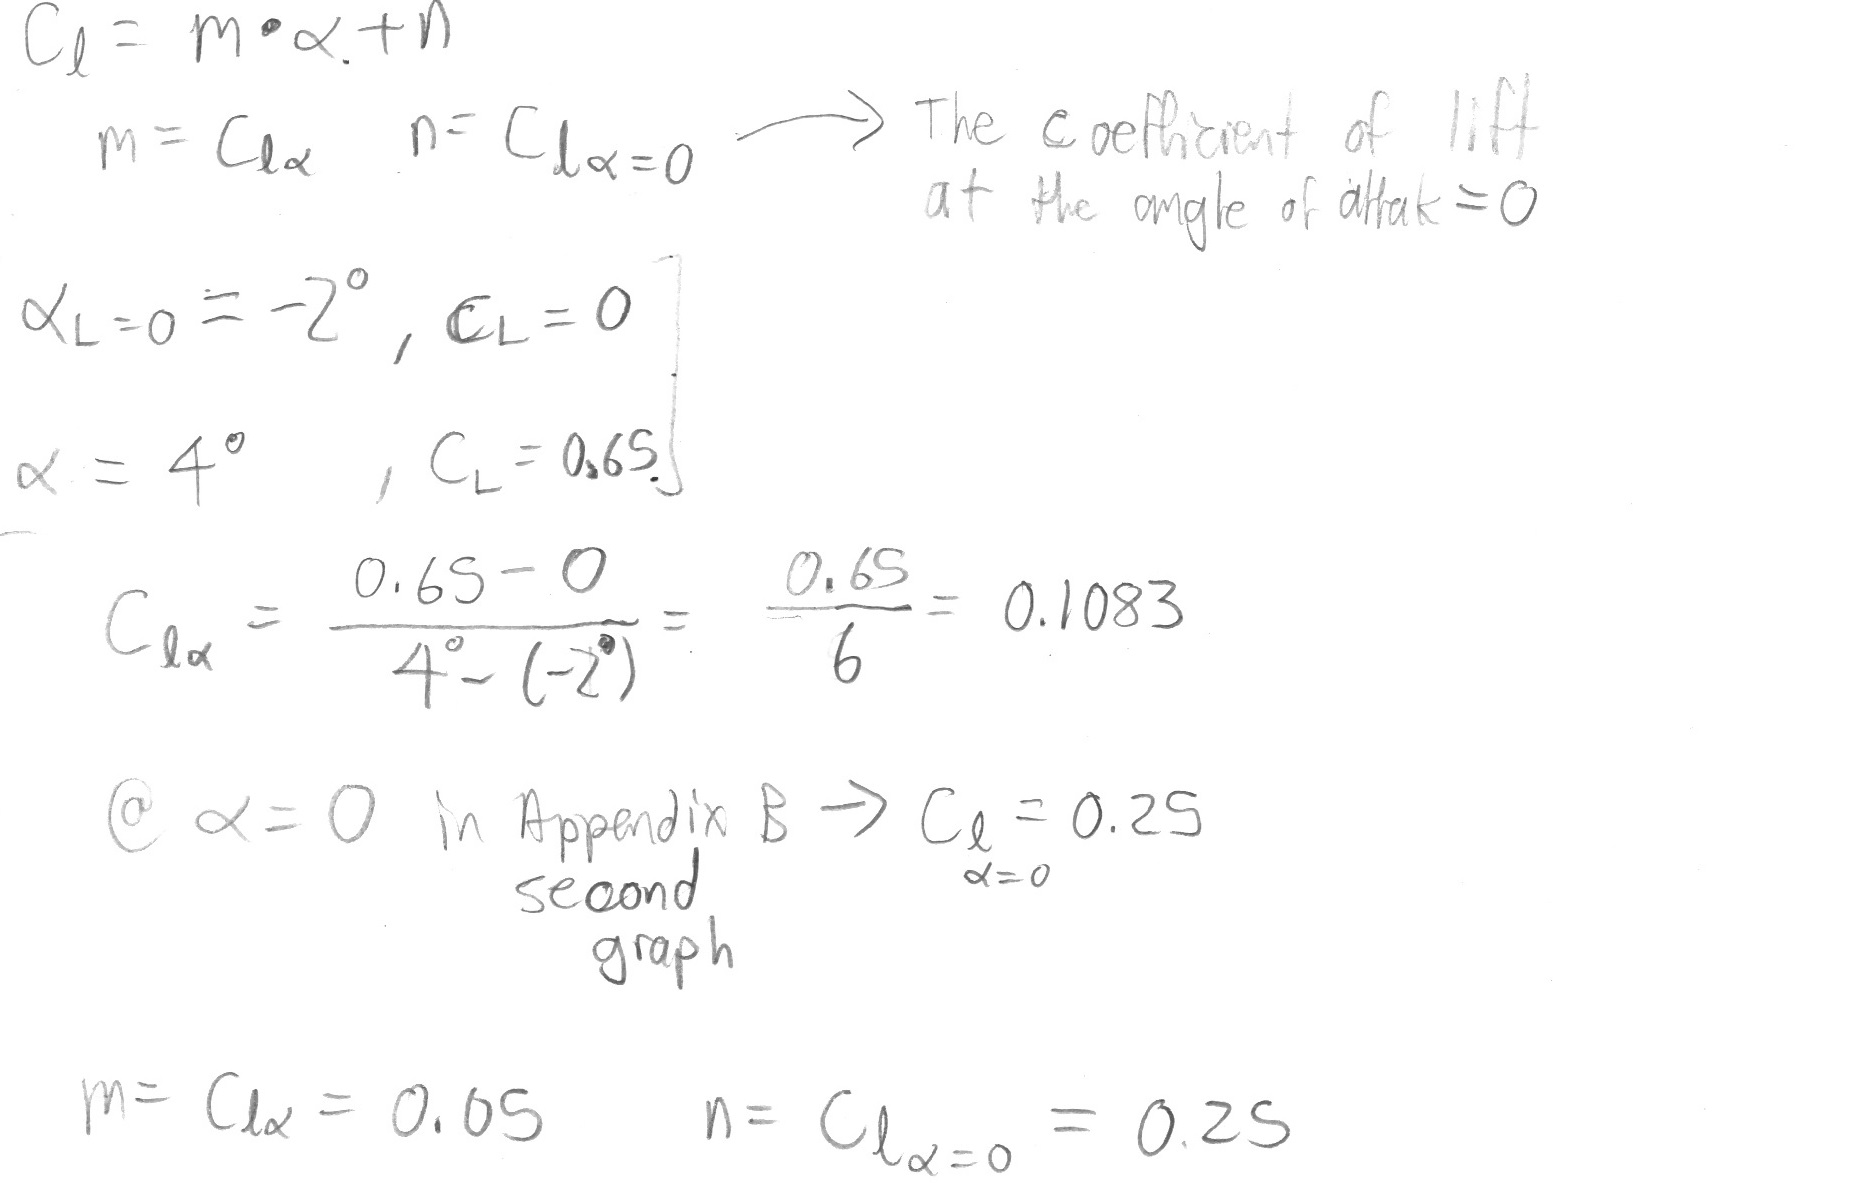 Cl = m•α + n
m = Clα n = Clα=0 → The coefficient of lift
at the angle of attak = 0
αL=0 = -2°, CL = 0
α = 4° , CL = 0.65
Clα = (0.65 - 0)/(4° - (-2°)) = 0.65/6 = 0.1083
@ α = 0 in Appendix B → Cl α=0 = 0.25
second
graph
m = Clα = 0.05 n = Clα=0 = 0.25